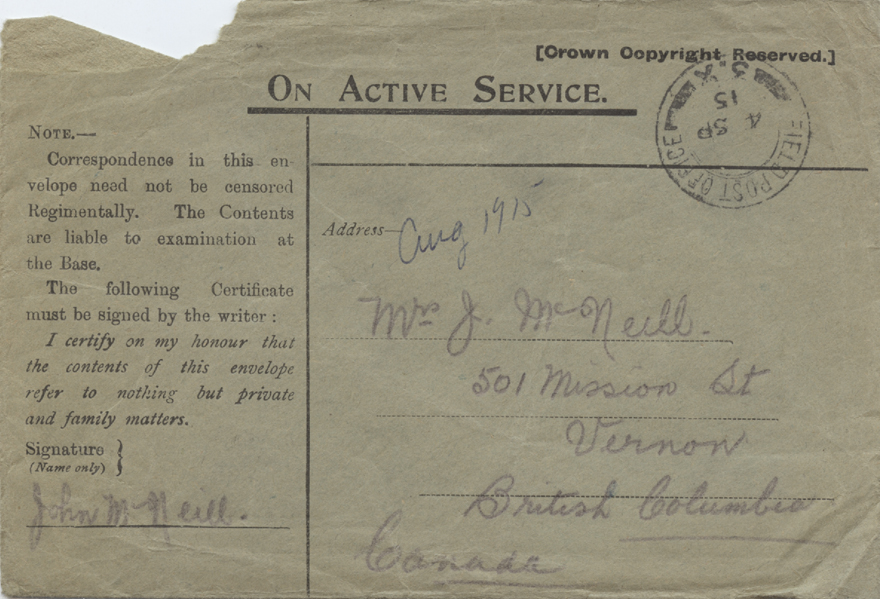 [Crown Copyright Reserved.]
ON ACTIVE SERVICE.
FIELD POST OFFICE
3.X
4 SP
15
NOTE.—
Correspondence in this en-
velope need not be censored
Regimentally. The Contents
are liable to examination at
the Base.
The following Certificate
must be signed by the writer :
I certify on my honour that
the contents of this envelope
refer to nothing but private
and family matters.
Signature }
(Name only)
John McNeill.
Address—
Aug 1915
Mrs J. McNeill.
501 Mission St
Vernon
British Columbia
Canada